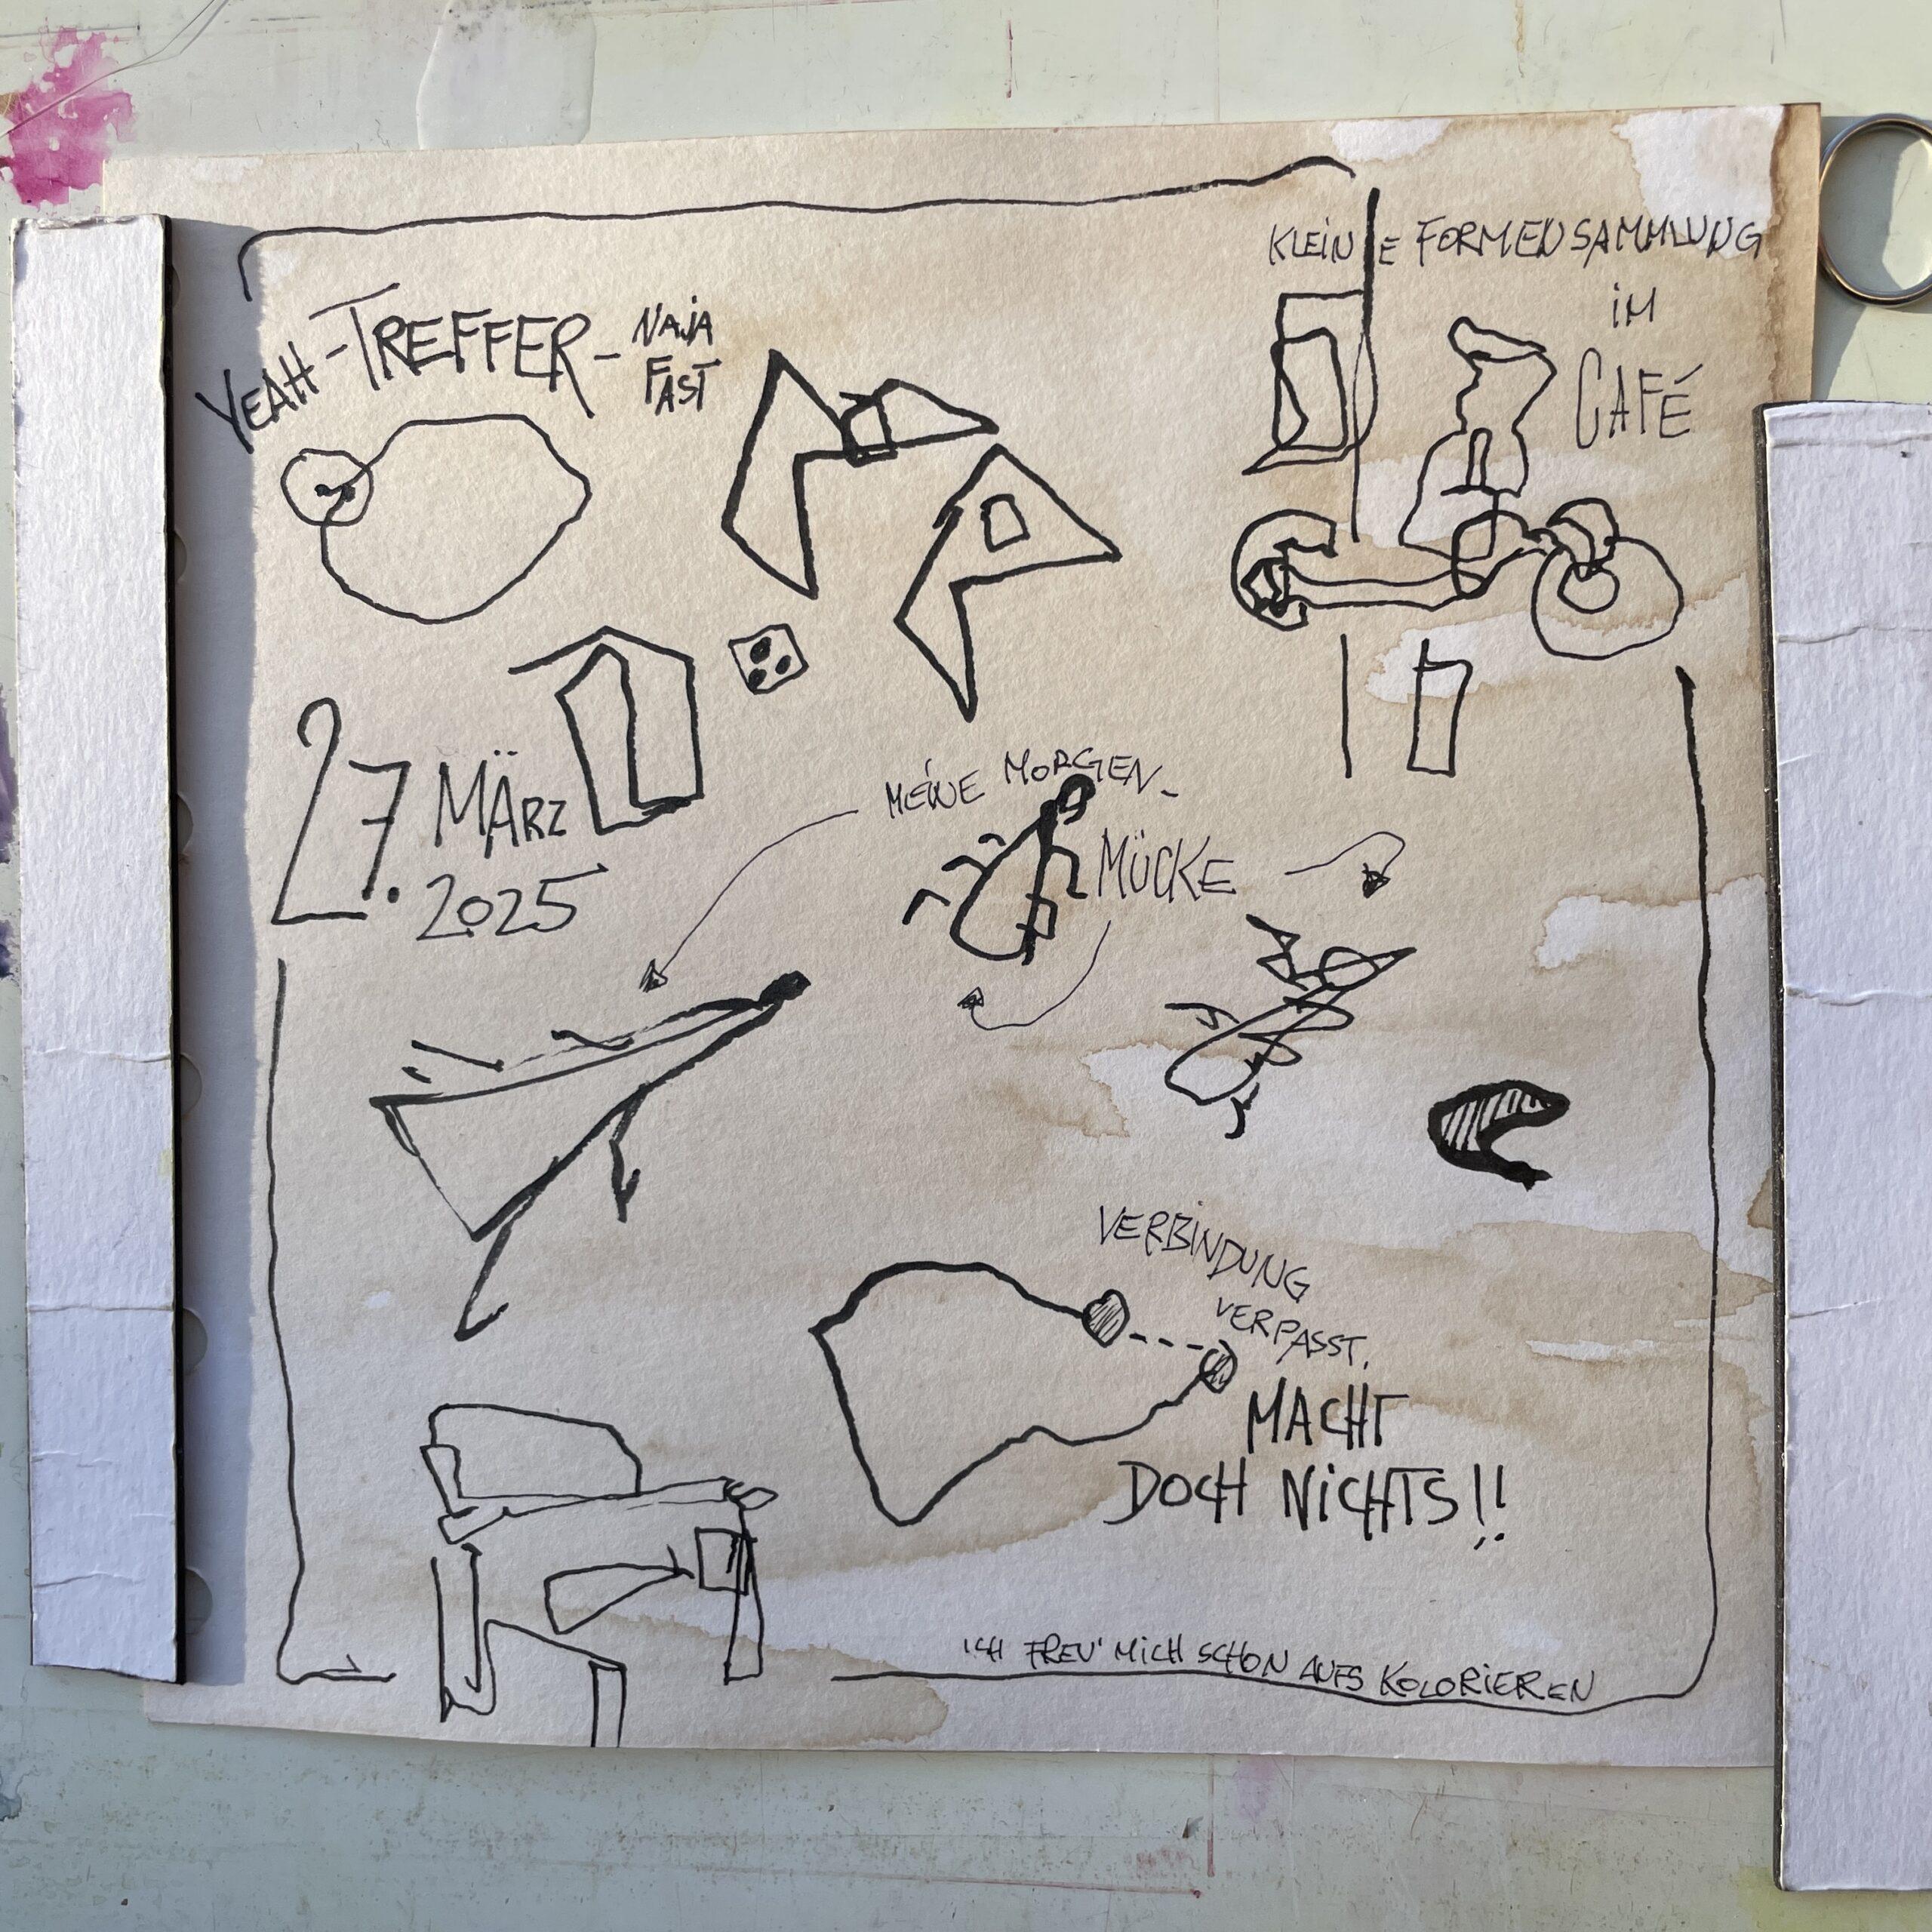 KLEINE FORMENSAMMLUNG
IM
CAFÉ
YEAH-TREFFER- NAJA
FAST
27. MÄRZ
2025
MEINE MORGEN-
MÜCKE
VERBINDUNG
VERPASST.
MACHT
DOCH NICHTS!!
ICH FREU' MICH SCHON AUFS KOLORIEREN